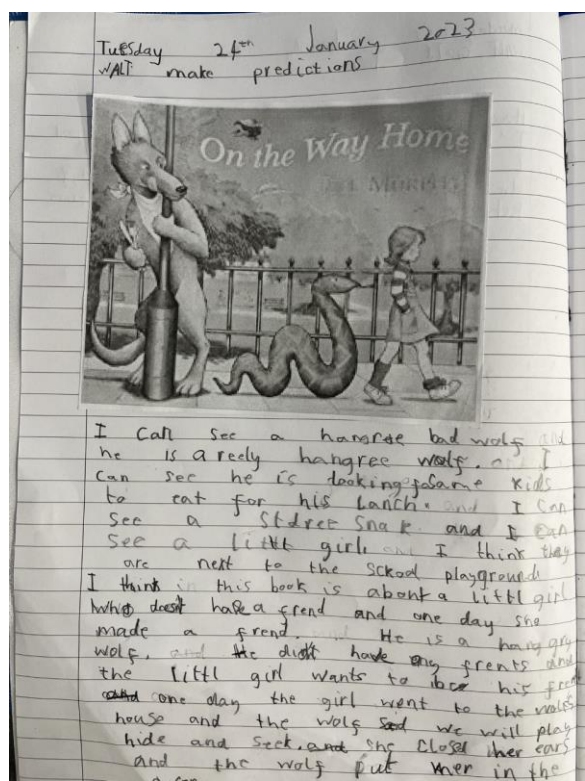 Tuesday 24th January 2023
WALT make predictions
On the Way Home
JILL MURPHY
I can see a hangree bad wolf and
he is a reely hangree wolf. I
can see he is looking fo same kids
to eat for his lanch. and I can
see a Stdree Snak and I can
see a littl girl. and I think they
are next to the school playground
I think in this book is about a littl girl
who doesn't have a frend and one day she
made a frend. He is a hangry
wolf. and He didn't have eny frents and
the littl girl wants to be his frend
one day the girl went to the wolfs
house and the wolf sed we will play
hide and seek. and she closed her ears
and the wolf put her in the